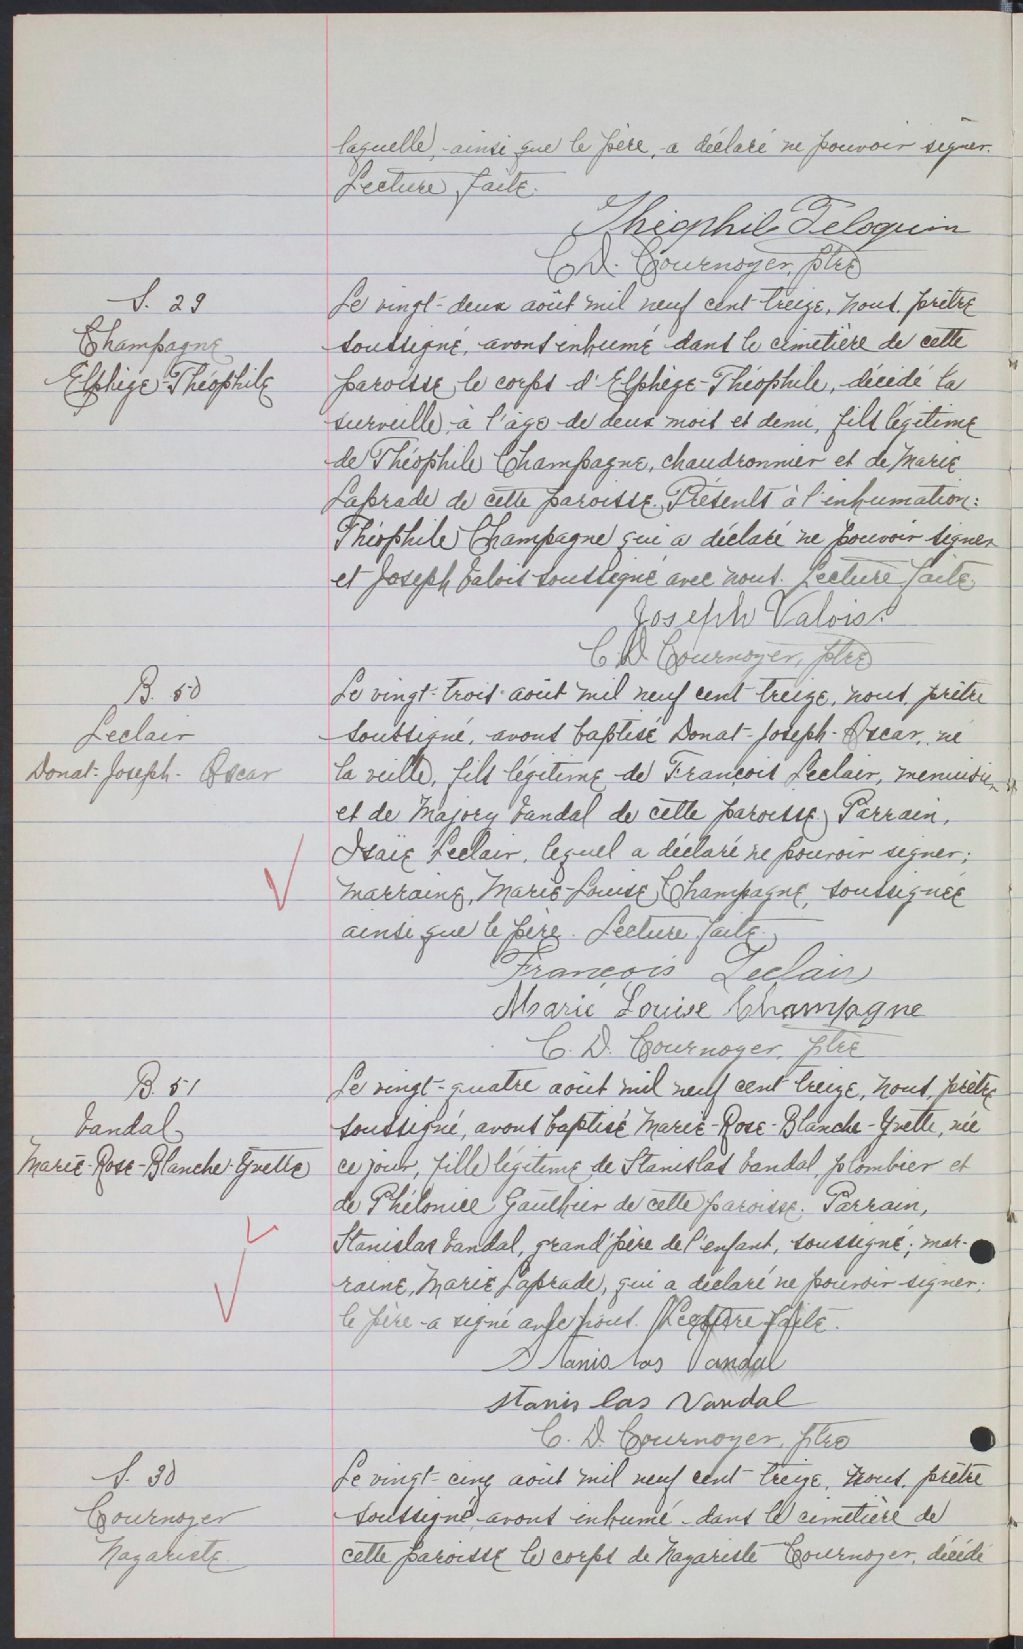 laquelle, ainsi que le père, a déclaré ne pouvoir signer.
Lecture faite.
Théophile Peloquin
C. D. Cournoyer, ptre
S. 29
Champagne
Elphège-Théophile
Le vingt-deux août mil neuf cent treize, nous, prêtre
soussigné, avons inhumé dans le cimetière de cette
paroisse le corps d'Elphège-Théophile, décédé la
surveille, à l'âge de deux mois et demi, fils légitime
de Théophile Champagne, chaudronnier et de Marie
Laprade de cette paroisse. Présents à l'inhumation:
Théophile Champagne qui a déclaré ne pouvoir signer
et Joseph Valois soussigné avec nous. Lecture faite.
Joseph Valois.
C. D. Cournoyer, ptre
B. 50
Leclair
Donat-Joseph-Oscar
Le vingt-trois août mil neuf cent treize, nous, prêtre
soussigné, avons baptisé Donat-Joseph-Oscar, né
la veille, fils légitime de François Leclair, menuisier
et de Majory Vandal de cette paroisse. Parrain,
Isaïe Leclair, lequel a déclaré ne pouvoir signer;
marraine, Marie-Louise Champagne, soussignée
ainsi que le père. Lecture faite.
François Leclair
Marie Louise Champagne
C. D. Cournoyer, ptre
B. 51
Vandal
Marie-Rose-Blanche-Yvette
Le vingt-quatre août mil neuf cent treize, nous, prêtre
soussigné, avons baptisé Marie-Rose-Blanche-Yvette, née
ce jour, fille légitime de Stanislas Vandal, plombier et
de Phélonice Gauthier de cette paroisse. Parrain,
Stanislas Vandal, grand'père de l'enfant, soussigné; mar-
raine, Marie Laprade, qui a déclaré ne pouvoir signer;
le père a signé avec nous. Lecture faite.
Stanislas Vandal
Stanislas Vandal
C. D. Cournoyer, ptre
S. 30
Cournoyer
Nazariste
Le vingt-cinq août mil neuf cent treize, nous, prêtre
soussigné, avons inhumé dans le cimetière de
cette paroisse le corps de Nazariste Cournoyer, décédé